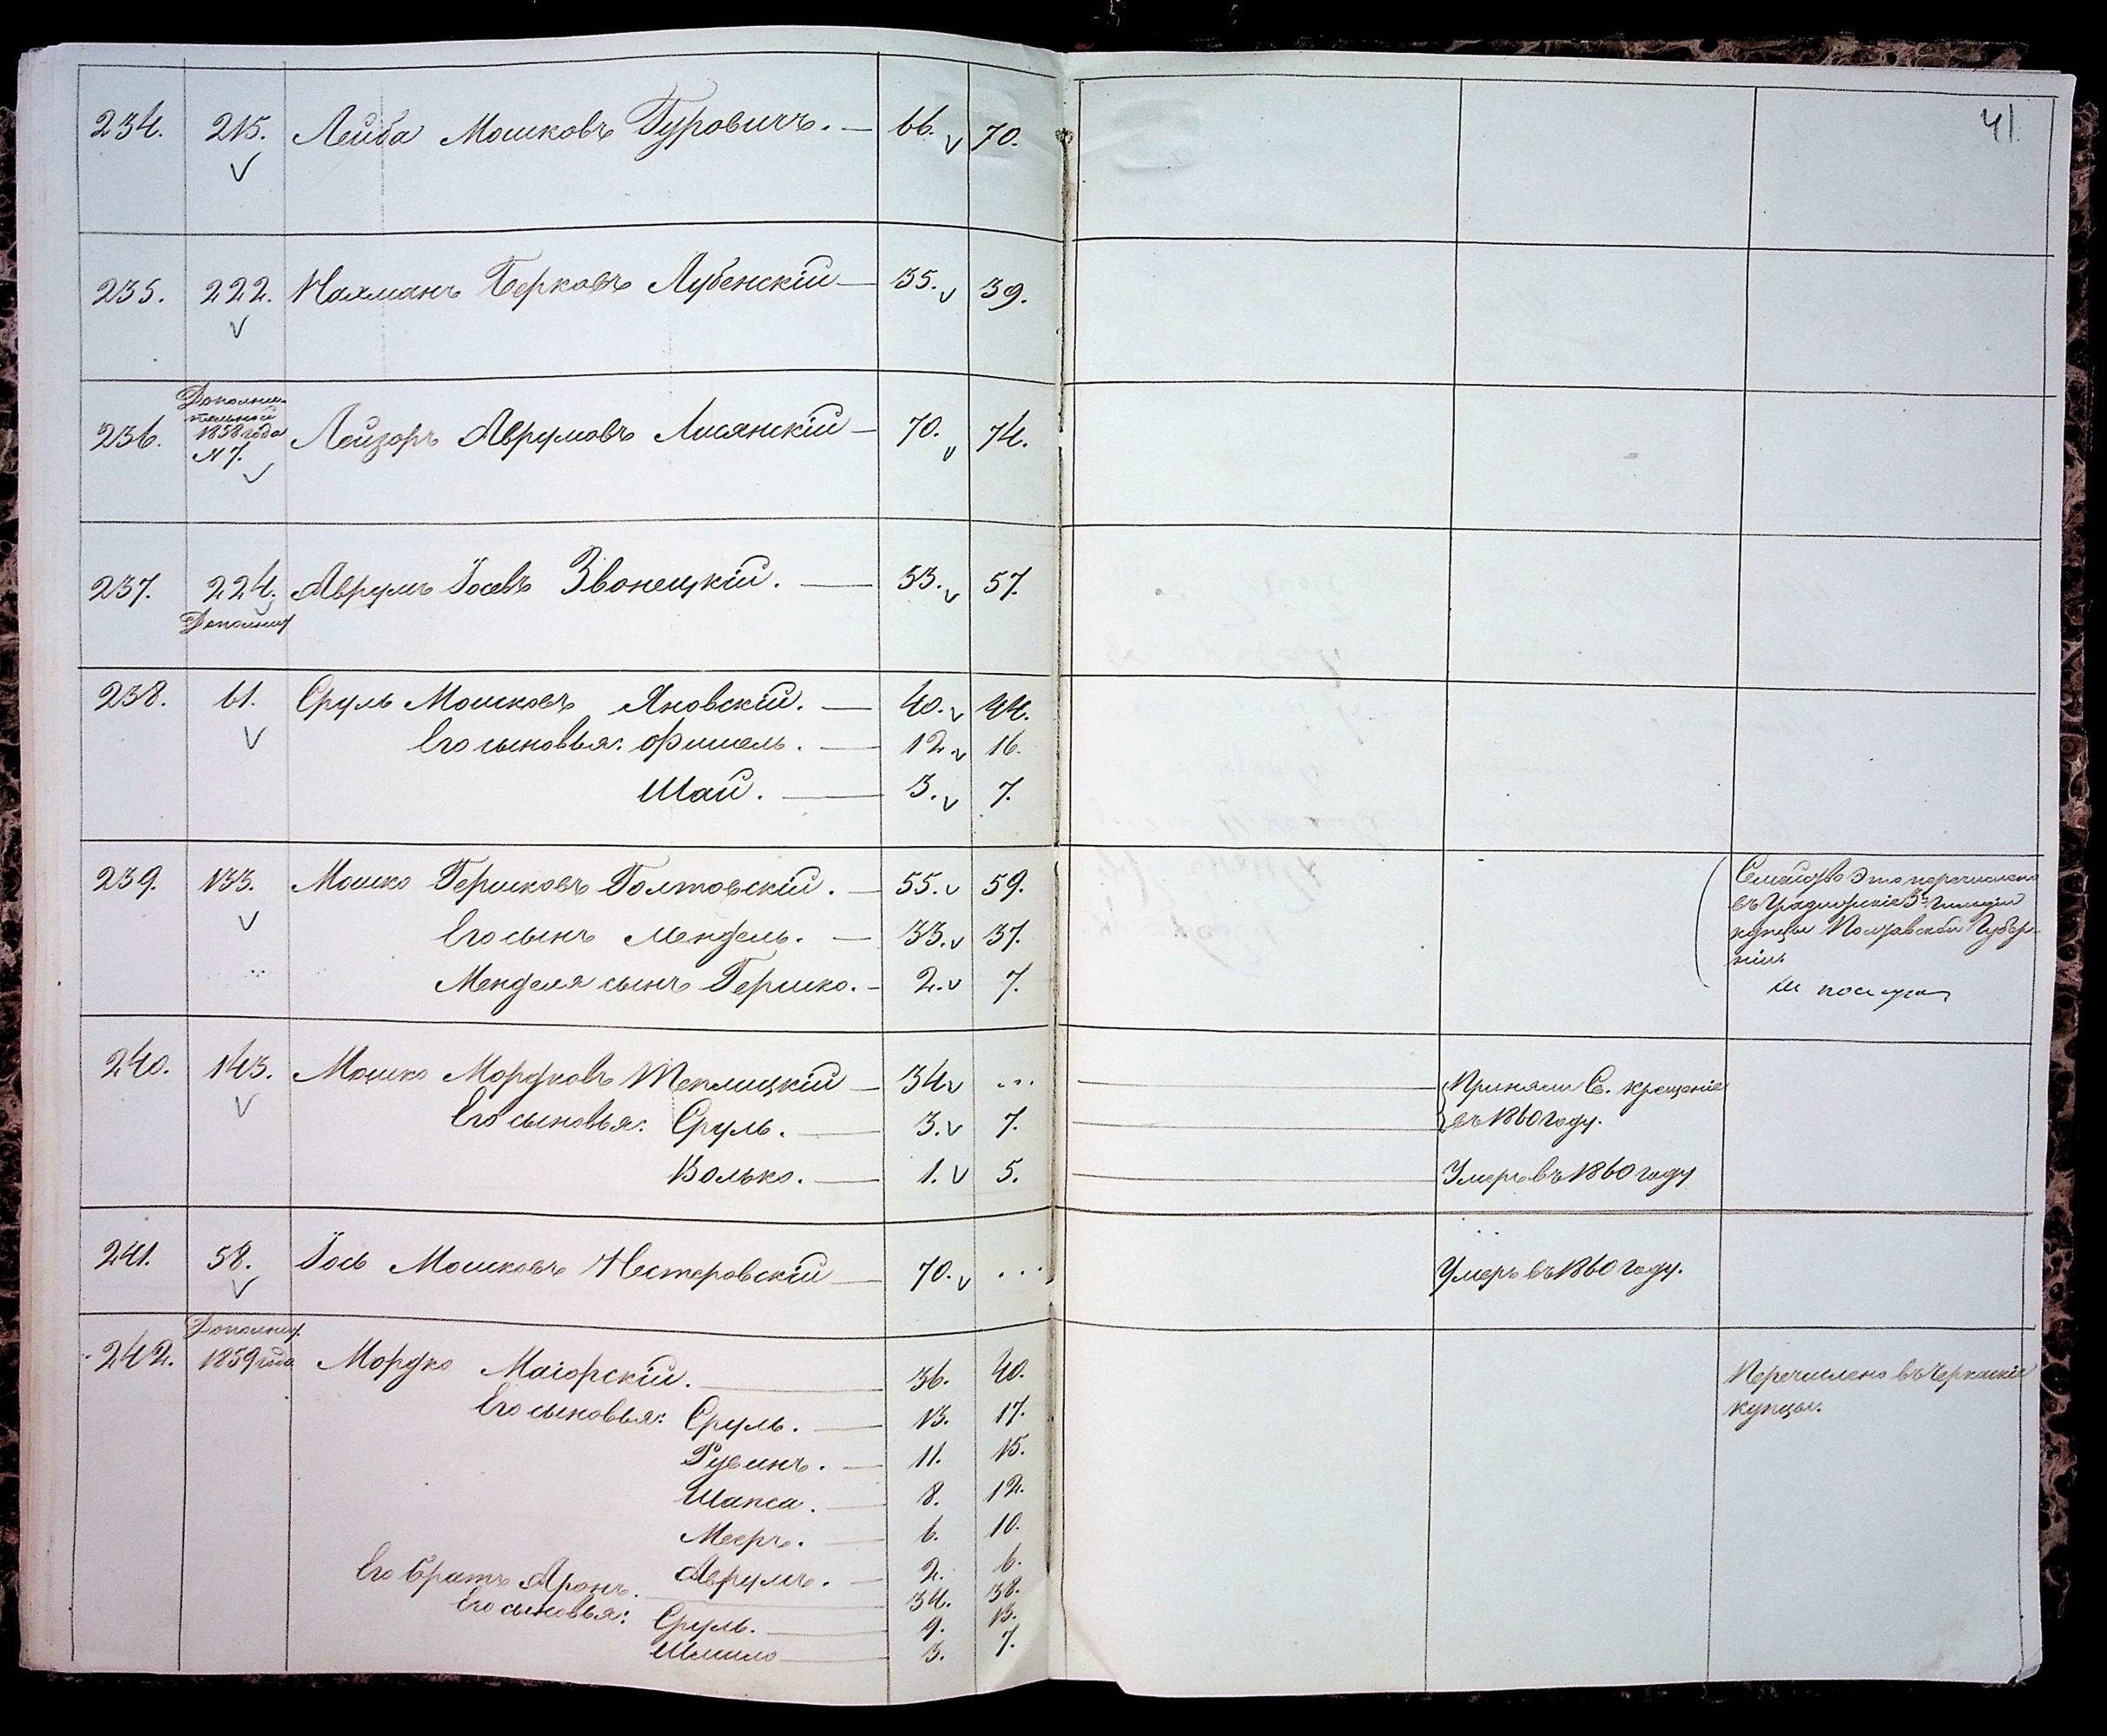 41
234. 215. Лейба Мошковъ Гуровичъ. — 66. v 70.
v
235. 222. Нахманъ Берковъ Лубенскій — 35. v 39.
v
Дополни-
тельной
236. 1858 года Лейзоръ Аврумовъ Лисянскій — 70. v 74.
№ 7.
v
237. 224. Аврумъ Іосевъ Звонецкій. — 53. v 57.
Дополнит
238. 61. Сруль Мошковъ Яновскій. — 40. v 44.
v Его сыновья: Фишель. — 12. v 16.
Шай. — 3. v 7.
239. 133. Мошко Гершковъ Голтовскій. — 55. v 59. Семейство это перечислено
v въ 3й гильдіи
Его сынъ Мендель. — 33. v 37. купцы Полтавской Губер-
ніи.
Менделя сынъ Гершко. — 2. v 7.
240. 143. Мошко Мордковъ Теплицкій — 34 v ... Приняли Св. крещеніе
v Его сыновья: Сруль. — 3. v 7. въ 1860 году.
Волько. — 1. v 5. Умеръ въ 1860 году
241. 58. Іось Мошковъ Нестеровскій — 70. v ... Умеръ въ 1860 году.
v
Дополнит.
242. 1859 года Мордко Маіорскій. — 36. 40. Перечислено въ Черкаскіе
купцы.
Его сыновья: Сруль. — 13. 17.
Рувинъ. — 11. 15.
Шапса. — 8. 12.
Мееръ. — 6. 10.
Аврумъ. — 2. 6.
Его братъ Аронъ. — 34. 38.
Его сыновья: Сруль. — 9. 13.
Шмило — 3. 7.